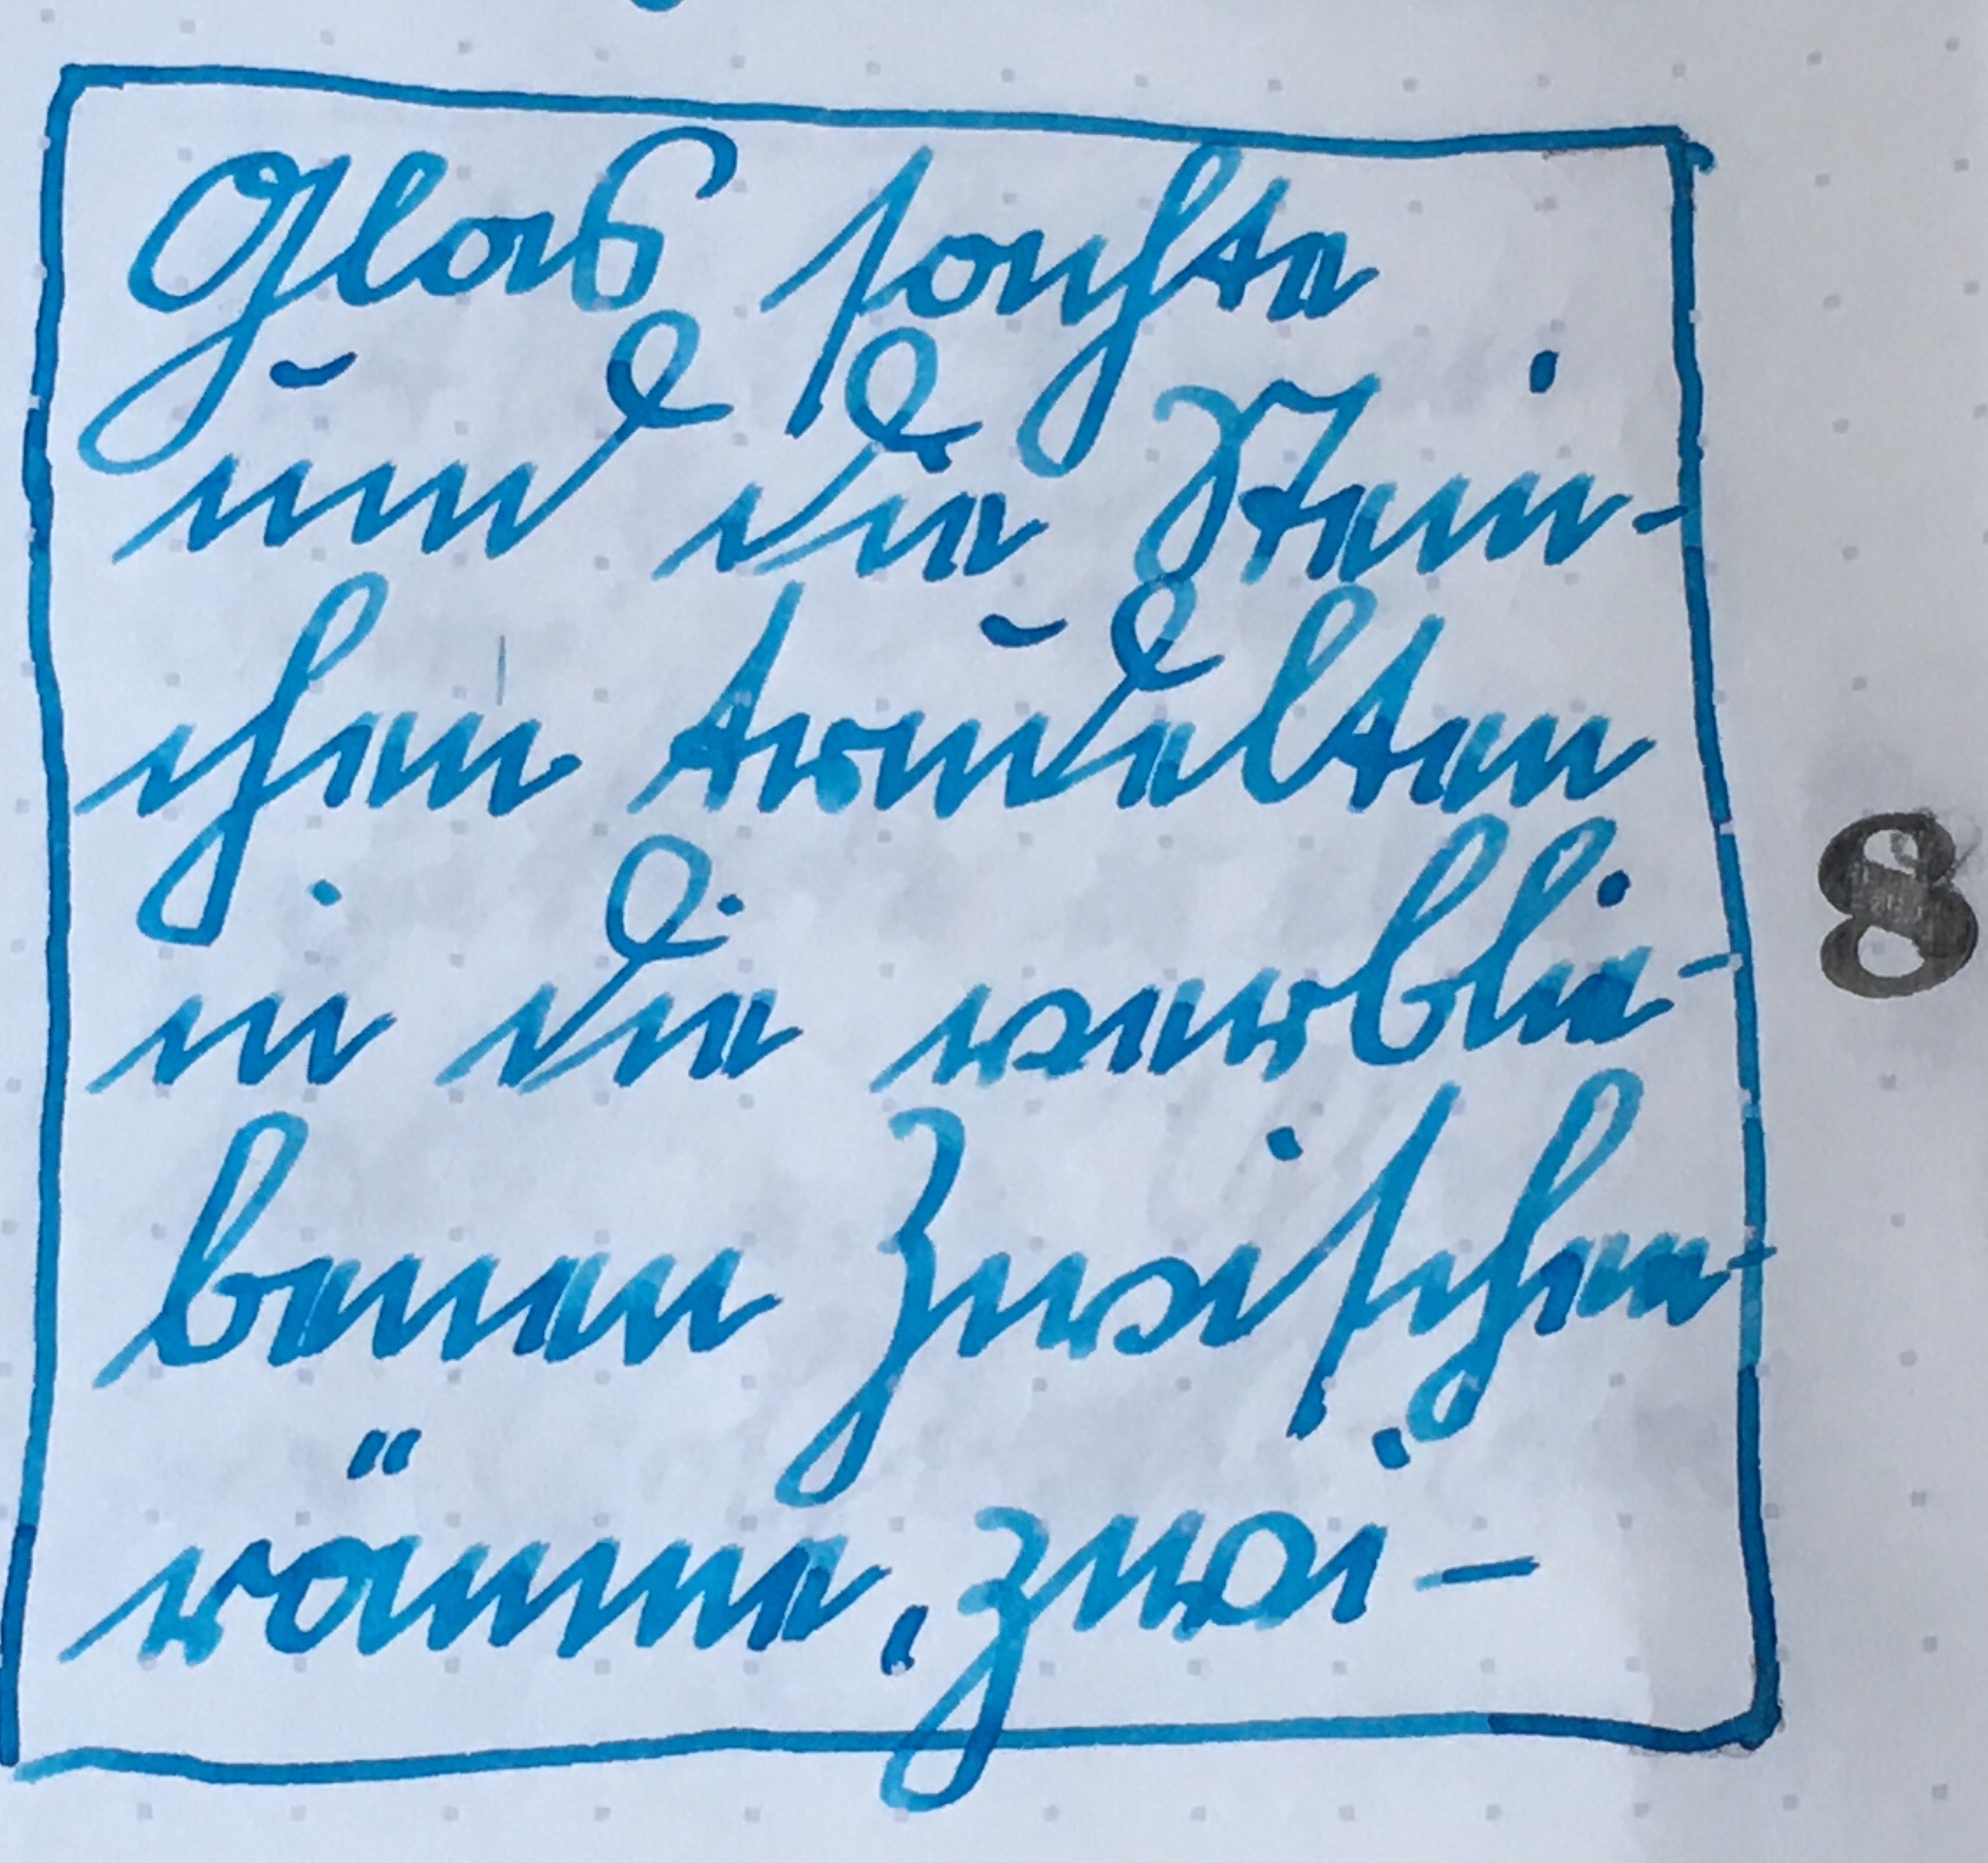 Glas sachte
und die Stein-
chen trudelten
in die verblie-
benen Zwischen-
räume, zwi-
8